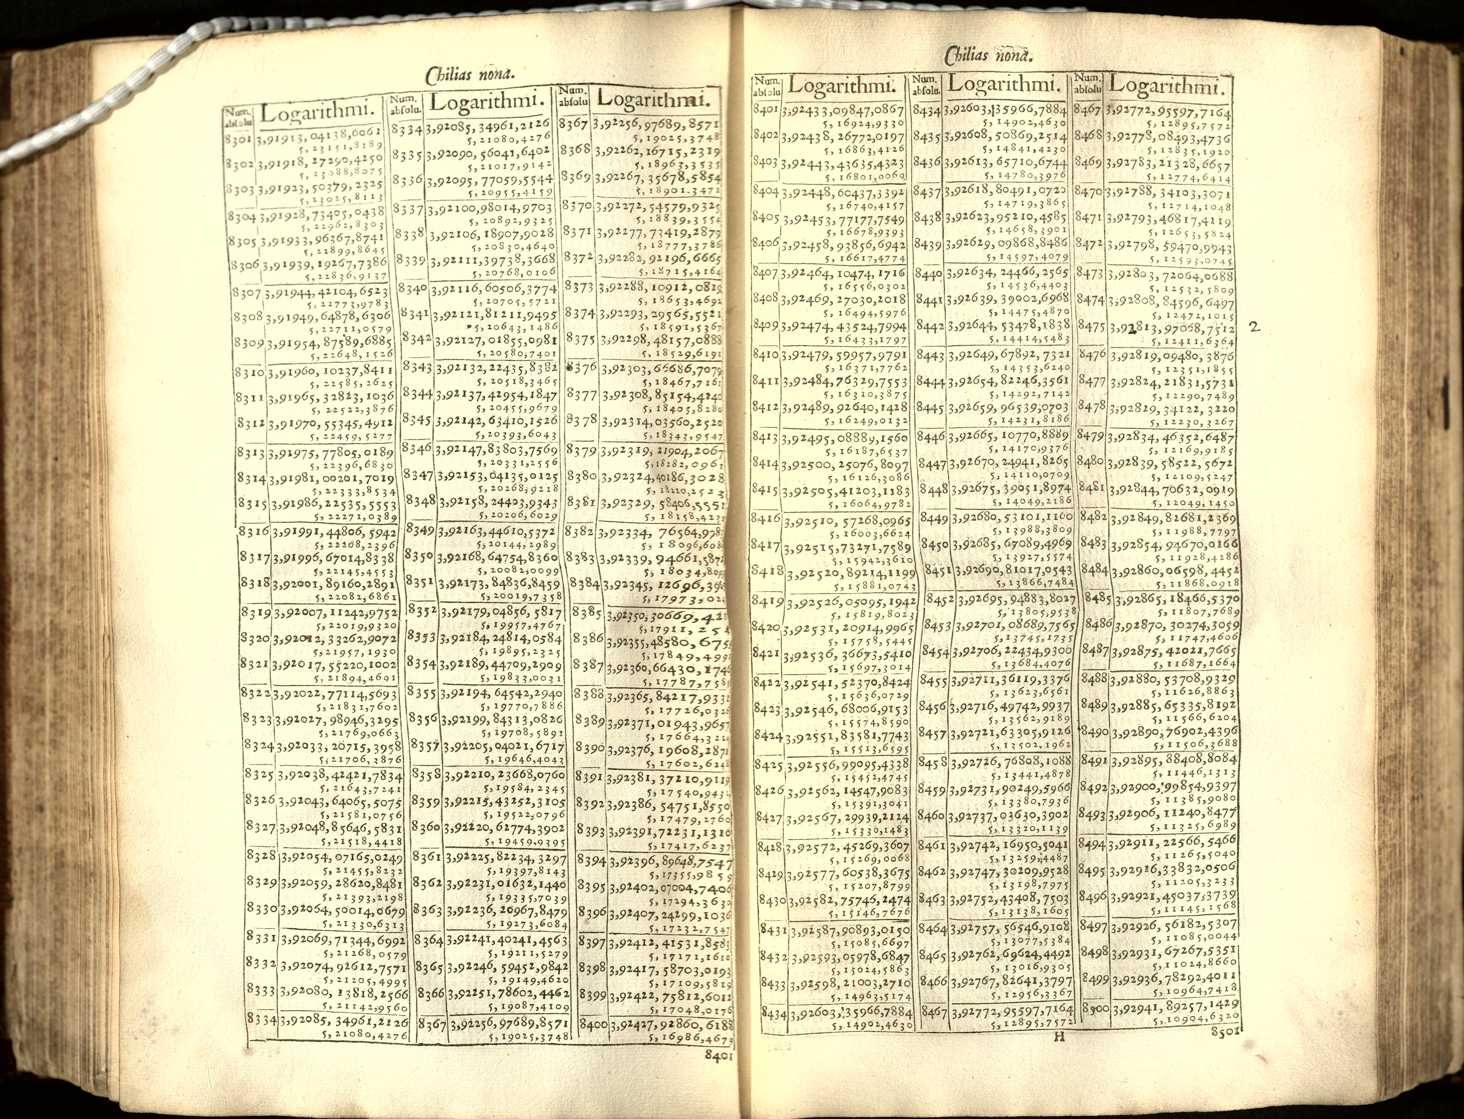 Chilias nona.
Num. absolu
Logarithmi.
8301 3,91913,04138,6061
5,23151,8189
8302 3,91918,27290,4250
5,23088,8075
8303 3,91923,50379,2325
5,23025,8113
8304 3,91928,73405,0438
5,22962,8303
8305 3,91933,96367,8741
5,22899,8645
8306 3,91939,19267,7386
5,22836,9137
8307 3,91944,42104,6523
5,22773,9783
8308 3,91949,64878,6306
5,22711,0579
8309 3,91954,87589,6885
5,22648,1526
8310 3,91960,10237,8411
5,22585,2625
8311 3,91965,32823,1036
5,22522,3876
8312 3,91970,55345,4912
5,22459,5277
8313 3,91975,77805,0189
5,22396,6830
8314 3,91981,00201,7019
5,22333,8534
8315 3,91986,22535,5553
5,22271,0389
8316 3,91991,44806,5942
5,22208,2396
8317 3,91996,67014,8338
5,22145,4553
8318 3,92001,89160,2891
5,22082,6861
8319 3,92007,11242,9752
5,22019,9320
8320 3,92012,33262,9072
5,21957,1930
8321 3,92017,55220,1002
5,21894,4691
8322 3,92022,77114,5693
5,21831,7602
8323 3,92027,98946,3295
5,21769,0663
8324 3,92033,20715,3958
5,21706,3876
8325 3,92038,42421,7834
5,21643,7241
8326 3,92043,64065,5075
5,21581,0756
8327 3,92048,85646,5831
5,21518,4418
8328 3,92054,07165,0249
5,21455,8232
8329 3,92059,28620,8481
5,21393,2198
8330 3,92064,50014,0679
5,21330,6313
8331 3,92069,71344,6992
5,21268,0579
8332 3,92074,92612,7571
5,21205,4995
8333 3,92080,13818,2566
5,21142,9560
8334 3,92085,34961,2126
5,21080,4276
Num. absolu.
Logarithmi.
8334 3,92085,34961,2126
5,21080,4276
8335 3,92090,56041,6402
5,21017,9142
8336 3,92095,77059,5544
5,20955,4159
8337 3,92100,98014,9703
5,20892,9325
8338 3,92106,18907,9028
5,20830,4640
8339 3,92111,39738,3668
5,20768,0106
8340 3,92116,60506,3774
5,20705,5721
8341 3,92121,81211,9495
5,20643,1486
8342 3,92127,01855,0981
5,20580,7401
8343 3,92132,22435,8382
5,20518,3465
8344 3,92137,42954,1847
5,20455,9679
8345 3,92142,63410,1526
5,20393,6043
8346 3,92147,83803,7569
5,20331,2556
8347 3,92153,04135,0125
5,20268,9218
8348 3,92158,24403,9343
5,20206,6029
8349 3,92163,44610,5372
5,20144,2989
8350 3,92168,64754,8360
5,20082,0099
8351 3,92173,84836,8459
5,20019,7358
8352 3,92179,04856,5817
5,19957,4767
8353 3,92184,24814,0584
5,19895,2325
8354 3,92189,44709,2909
5,19833,0031
8355 3,92194,64542,2940
5,19770,7886
8356 3,92199,84313,0826
5,19708,5891
8357 3,92205,04021,6717
5,19646,4043
8358 3,92210,23668,0760
5,19584,2345
8359 3,92215,43252,3105
5,19522,0796
8360 3,92220,62774,3902
5,19459,9395
8361 3,92225,82234,3297
5,19397,8143
8362 3,92231,01632,1440
5,19335,7039
8363 3,92236,20967,8479
5,19273,6084
8364 3,92241,40241,4563
5,19211,5279
8365 3,92246,59452,9842
5,19149,4620
8366 3,92251,78602,4462
5,19087,4109
8367 3,92256,97689,8571
5,19025,3748
Num. absolu
Logarithmi.
8367 3,92256,97689,8571
5,19025,3748
8368 3,92262,16715,2319
5,18963,3535
8369 3,92267,35678,5854
5,18901,3472
8370 3,92272,54579,9325
5,18839,3554
8371 3,92277,73419,2879
5,18777,3786
8372 3,92282,92196,6665
5,18715,4164
8373 3,92288,10912,0829
5,18653,4692
8374 3,92293,29565,5521
5,18591,5367
8375 3,92298,48157,0888
5,18529,6191
8376 3,92303,66686,7079
5,18467,7161
8377 3,92308,85154,4240
5,18405,8280
8378 3,92314,03560,2520
5,18343,9547
8379 3,92319,21904,2067
5,18282,0961
8380 3,92324,40186,3028
5,18220,2523
8381 3,92329,58406,5551
5,18158,423
8382 3,92334,76564,978
5,18096,608
8383 3,92339,94661,587
5,18034,80
8384 3,92345,12696,39
5,17973,02
8385 3,92350,30669,42
5,17911,25
8386 3,92355,48580,675
5,17849,49
8387 3,92360,66430,174
5,17787,758
8388 3,92365,84217,933
5,17726,032
8389 3,92371,01943,965
5,17664,322
8390 3,92376,19608,287
5,17602,624
8391 3,92381,37210,911
5,17540,943
8392 3,92386,54751,8550
5,17479,2760
8393 3,92391,72231,1310
5,17417,6237
8394 3,92396,89648,7547
5,17355,9859
8395 3,92402,07004,7406
5,17294,3630
8396 3,92407,24299,1036
5,17232,7547
8397 3,92412,41531,8583
5,17171,1610
8398 3,92417,58703,0193
5,17109,5819
8399 3,92422,75812,6012
5,17048,0176
8400 3,92427,92860,6188
5,16986,4679
8401
Chilias nona.
Num. absolu
Logarithmi.
8401 3,92433,09847,0867
5,16924,9330
8402 3,92438,26772,0197
5,16863,4126
8403 3,92443,43635,4323
5,16801,9069
8404 3,92448,60437,3392
5,16740,4157
8405 3,92453,77177,7549
5,16678,9393
8406 3,92458,93856,6942
5,16617,4774
8407 3,92464,10474,1716
5,16556,0302
8408 3,92469,27030,2018
5,16494,5976
8409 3,92474,43524,7994
5,16433,1797
8410 3,92479,59957,9791
5,16371,7762
8411 3,92484,76329,7553
5,16310,3875
8412 3,92489,92640,1428
5,16249,0132
8413 3,92495,08889,1560
5,16187,6537
8414 3,92500,25076,8097
5,16126,3086
8415 3,92505,41203,1183
5,16064,9782
8416 3,92510,57268,0965
5,16003,6624
8417 3,92515,73271,7589
5,15942,3610
8418 3,92520,89214,1199
5,15881,0743
8419 3,92526,05095,1942
5,15819,8023
8420 3,92531,20914,9965
5,15758,5445
8421 3,92536,36673,5410
5,15697,3014
8422 3,92541,52370,8424
5,15636,0729
8423 3,92546,68006,9153
5,15574,8590
8424 3,92551,83581,7743
5,15513,6595
8425 3,92556,99095,4338
5,15452,4745
8426 3,92562,14547,9083
5,15391,3041
8427 3,92567,29939,2124
5,15330,1483
8428 3,92572,45269,3607
5,15269,0068
8429 3,92577,60538,3675
5,15207,8799
8430 3,92582,75746,2474
5,15146,7676
8431 3,92587,90893,0150
5,15085,6697
8432 3,92593,05978,6847
5,15024,5863
8433 3,92598,21003,2710
5,14963,5174
8434 3,92603,35966,7884
5,14902,4630
Num. absolu.
Logarithmi.
8434 3,92603,35966,7884
5,14902,4630
8435 3,92608,50869,2514
5,14841,4230
8436 3,92613,65710,6744
5,14780,3976
8437 3,92618,80491,0720
5,14719,3865
8438 3,92623,95210,4585
5,14658,3901
8439 3,92629,09868,8486
5,14597,4079
8440 3,92634,24466,2565
5,14536,4403
8441 3,92639,39002,6968
5,14475,4870
8442 3,92644,53478,1838
5,14414,5483
8443 3,92649,67892,7321
5,14353,6240
8444 3,92654,82246,3561
5,14292,7142
8445 3,92659,96539,0703
5,14231,8186
8446 3,92665,10770,8889
5,14170,9376
8447 3,92670,24941,8265
5,14110,0709
8448 3,92675,39051,8974
5,14049,2186
8449 3,92680,53101,1160
5,13988,3809
8450 3,92685,67089,4969
5,13927,5574
8451 3,92690,81017,0543
5,13866,7484
8452 3,92695,94883,8027
5,13805,9538
8453 3,92701,08689,7565
5,13745,1735
8454 3,92706,22434,9300
5,13684,4076
8455 3,92711,36119,3376
5,13623,6561
8456 3,92716,49742,9937
5,13562,9189
8457 3,92721,63305,9126
5,13502,1962
8458 3,92726,76808,1088
5,13441,4878
8459 3,92731,90249,5966
5,13380,7936
8460 3,92737,03630,3902
5,13320,1139
8461 3,92742,16950,5041
5,13259,4487
8462 3,92747,30209,9528
5,13198,7975
8463 3,92752,43408,7503
5,13138,1605
8464 3,92757,56546,9108
5,13077,5384
8465 3,92762,69624,4492
5,13016,9305
8466 3,92767,82641,3797
5,12956,3367
8467 3,92772,95597,7164
5,12895,7572
Num. absolu
Logarithmi.
8467 3,92772,95597,7164
5,12895,7572
8468 3,92778,08493,4736
5,12835,1920
8469 3,92783,21328,6657
5,12774,6414
8470 3,92788,34103,3071
5,12714,1048
8471 3,92793,46817,4119
5,12653,5824
8472 3,92798,59470,9943
5,12593,0745
8473 3,92803,72064,0688
5,12532,5809
8474 3,92808,84596,6497
5,12472,1015
8475 3,92813,97068,7512
5,12411,6364
2
8476 3,92819,09480,3876
5,12351,1855
8477 3,92824,21831,5731
5,12290,7489
8478 3,92829,34122,3220
5,12230,3267
8479 3,92834,46352,6487
5,12169,9185
8480 3,92839,58522,5672
5,12109,5247
8481 3,92844,70632,0919
5,12049,1450
8482 3,92849,82681,2369
5,11988,7797
8483 3,92854,94670,0166
5,11928,4286
8484 3,92860,06598,4452
5,11868,0918
8485 3,92865,18466,5370
5,11807,7689
8486 3,92870,30274,3059
5,11747,4606
8487 3,92875,42021,7665
5,11687,1664
8488 3,92880,53708,9329
5,11626,8863
8489 3,92885,65335,8192
5,11566,6204
8490 3,92890,76902,4396
5,11506,3688
8491 3,92895,88408,8084
5,11446,1313
8492 3,92900,99854,9397
5,11385,9080
8493 3,92906,11240,8477
5,11325,6989
8494 3,92911,22566,5466
5,11265,5040
8495 3,92916,33832,0506
5,11205,3233
8496 3,92921,45037,3739
5,11145,1568
8497 3,92926,56182,5307
5,11085,0044
8498 3,92931,67267,5351
5,11024,8660
8499 3,92936,78292,4011
5,10964,7418
8500 3,92941,89257,1429
5,10904,6320
H
8501